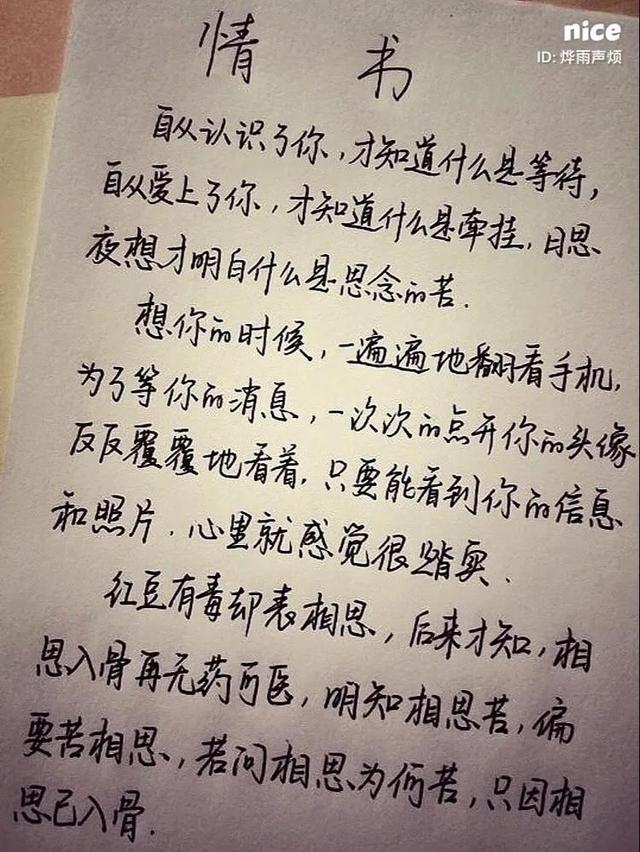 nice
ID: 烨雨声烦
情 书
自从认识了你，才知道什么是等待，
自从爱上了你，才知道什么是牵挂，日思
夜想才明白什么是思念的苦.
想你的时候，一遍遍地翻看手机，
为了等你的消息，一次次的点开你的头像
反反覆覆地看着，只要能看到你的信息
和照片.心里就感觉很踏实.
红豆有毒却表相思，后来才知，相
思入骨再无药可医，明知相思苦，偏
要苦相思，若问相思为何苦，只因相
思已入骨.